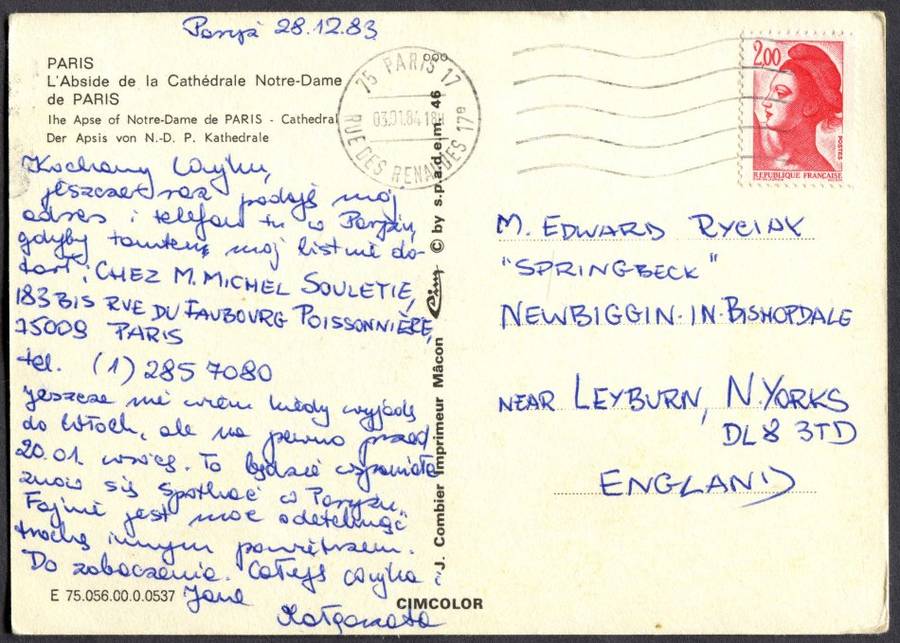 Paryż 28.12.83
PARIS
L'Abside de la Cathédrale Notre-Dame
de PARIS
The Apse of Notre-Dame de PARIS - Cathedral
Der Apsis von N.-D. P. Kathedrale
Kochany Wujku,
jeszcze raz podaję mój
adres i telefon tu w Paryżu,
gdyby tamten mój list nie do-
tarł: CHEZ M. MICHEL SOULETIE,
183 BIS RUE DU FAUBOURG POISSONNIÈRE,
75009 PARIS
tel. (1) 285 7080
Jeszcze nie wiem kiedy wyjadę
do Włoch, ale na pewno przed
20.01. To będzie wspaniale
znów się spotkać w Paryżu.
Fajnie jest móc odetchnąć
trochę innym powietrzem.
Do zobaczenia. Całuję Wujka i
Małgorzata
E 75.056.00.0.0537
CIMCOLOR
J. Combier Imprimeur Mâcon Cim © by s.p.a.d.e.m. 46
75 PARIS 17
03.01.84 18H
RUE DES RENAUDES 17e
2,00
POSTES
REPUBLIQUE FRANÇAISE
M. EDWARD RYCIAK
"SPRINGBECK"
NEWBIGGIN-IN-BISHOPDALE
NEAR LEYBURN, N.YORKS
DL8 3TD
ENGLAND